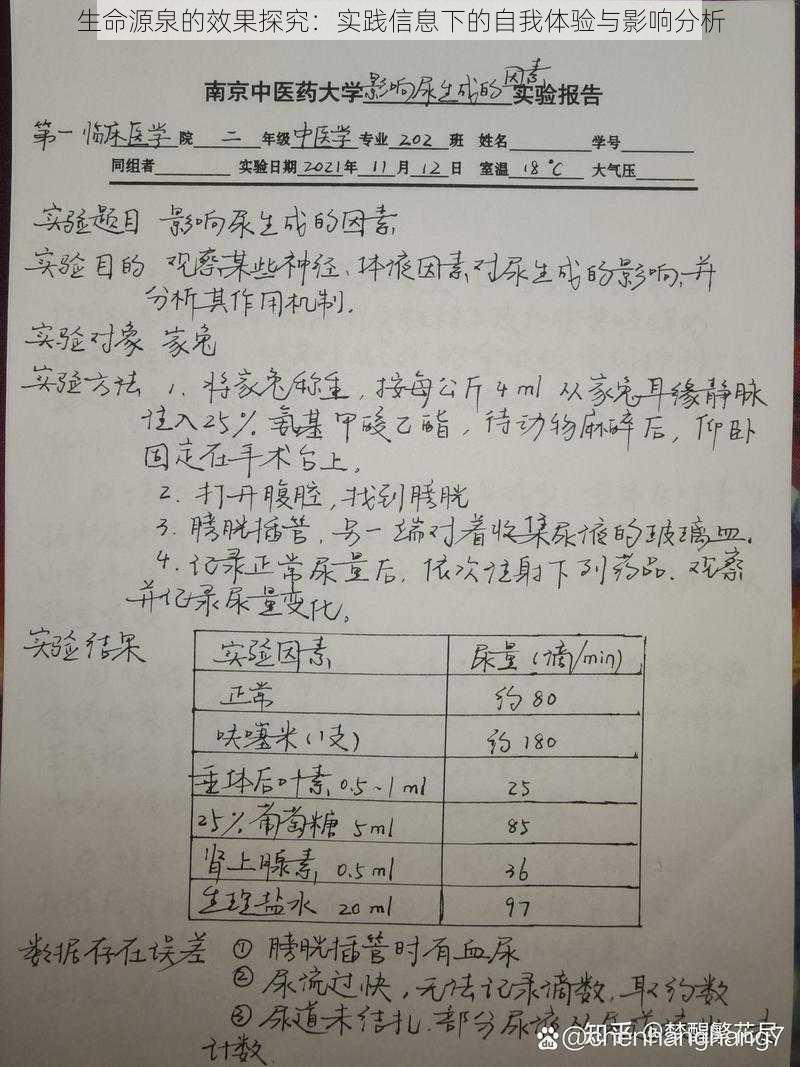 生命源泉的效果探究：实践信息下的自我体验与影响分析
南京中医药大学影响尿生成的因素实验报告
第一临床医学 院 二 年级 中医学 专业 202 班 姓名 学号
同组者 实验日期 2021年 11 月 12 日 室温 18℃ 大气压
实验题目 影响尿生成的因素
实验目的 观察某些神经、体液因素对尿生成的影响，并
分析其作用机制.
实验对象 家兔
实验方法 1. 将家兔称重，按每公斤4ml 从家兔耳缘静脉
注入25% 氨基甲酸乙酯，待动物麻醉后，仰卧
固定在手术台上。
2. 打开腹腔，找到膀胱
3. 膀胱插管，另一端对着收集尿液的玻璃皿。
4. 记录正常尿量后，依次注射下列药品．观察
并记录尿量变化。
实验结果
实验因素 尿量（滴/min）
正常 约 80
呋噻米（1支） 约 180
垂体后叶素 0.5~1 ml 25
25% 葡萄糖 5ml 85
肾上腺素 0.5ml 36
生理盐水 20ml 97
数据存在误差 ① 膀胱插管时有血尿
② 尿流过快，无法记录滴数，取约数
③ 尿道未结扎．部分尿液从尿道
计数.
知乎 @梦醒繁花尽
@chenhanghang7